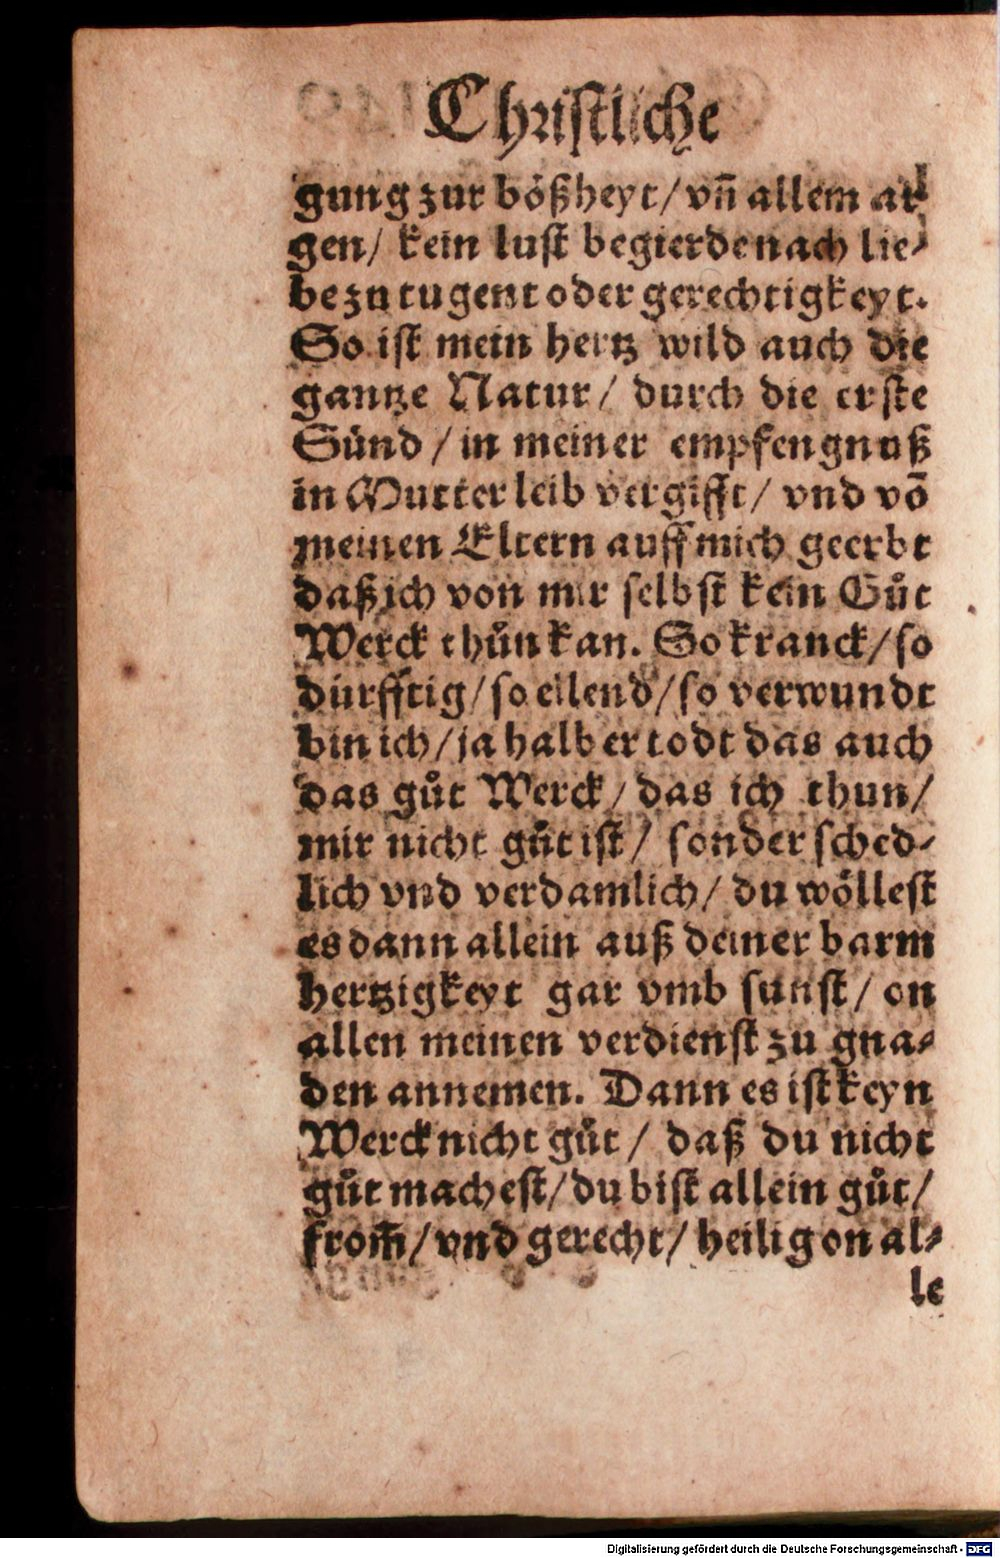 Christliche
gung zur bößheyt/ vñ allem ar⸗
gen/ kein lust begierde nach lie⸗
be zu tugent oder gerechtigkeyt.
So ist mein hertz wild auch die
gantze Natur/ durch die erste
Sünd/ in meiner empfengnuß
in Mutter leib vergifft/ vnd võ
meinen Eltern auff mich geerbt
daß ich von mir selbst kein Gůt
Werck thůn kan. So kranck/ so
dürfftig/ so ellend/ so verwundt
bin ich/ ja halber todt das auch
das gůt Werck/ das ich thun/
mir nicht gůt ist/ sonder sched⸗
lich vnd verdamlich/ du wöllest
es dann allein auß deiner barm
hertzigkeyt gar vmb sunst/ on
allen meinen verdienst zu gna⸗
den annemen. Dann es ist keyn
Werck nicht gůt/ daß du nicht
gůt machest/ du bist allein gůt/
from̃/ vnd gerecht/ heilig on al⸗
le
Digitalisierung gefördert durch die Deutsche Forschungsgemeinschaft - DFG